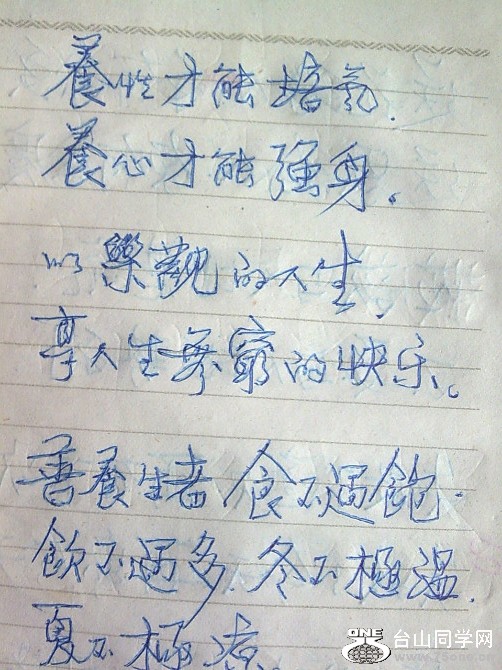 養性才能培氣.
養心才能强身.
以樂觀的人生.
享人生無窮的快乐。
善養生者,食不過飽.
飲不過多.冬不極溫.
夏不極凉.
ONE
台山同学网